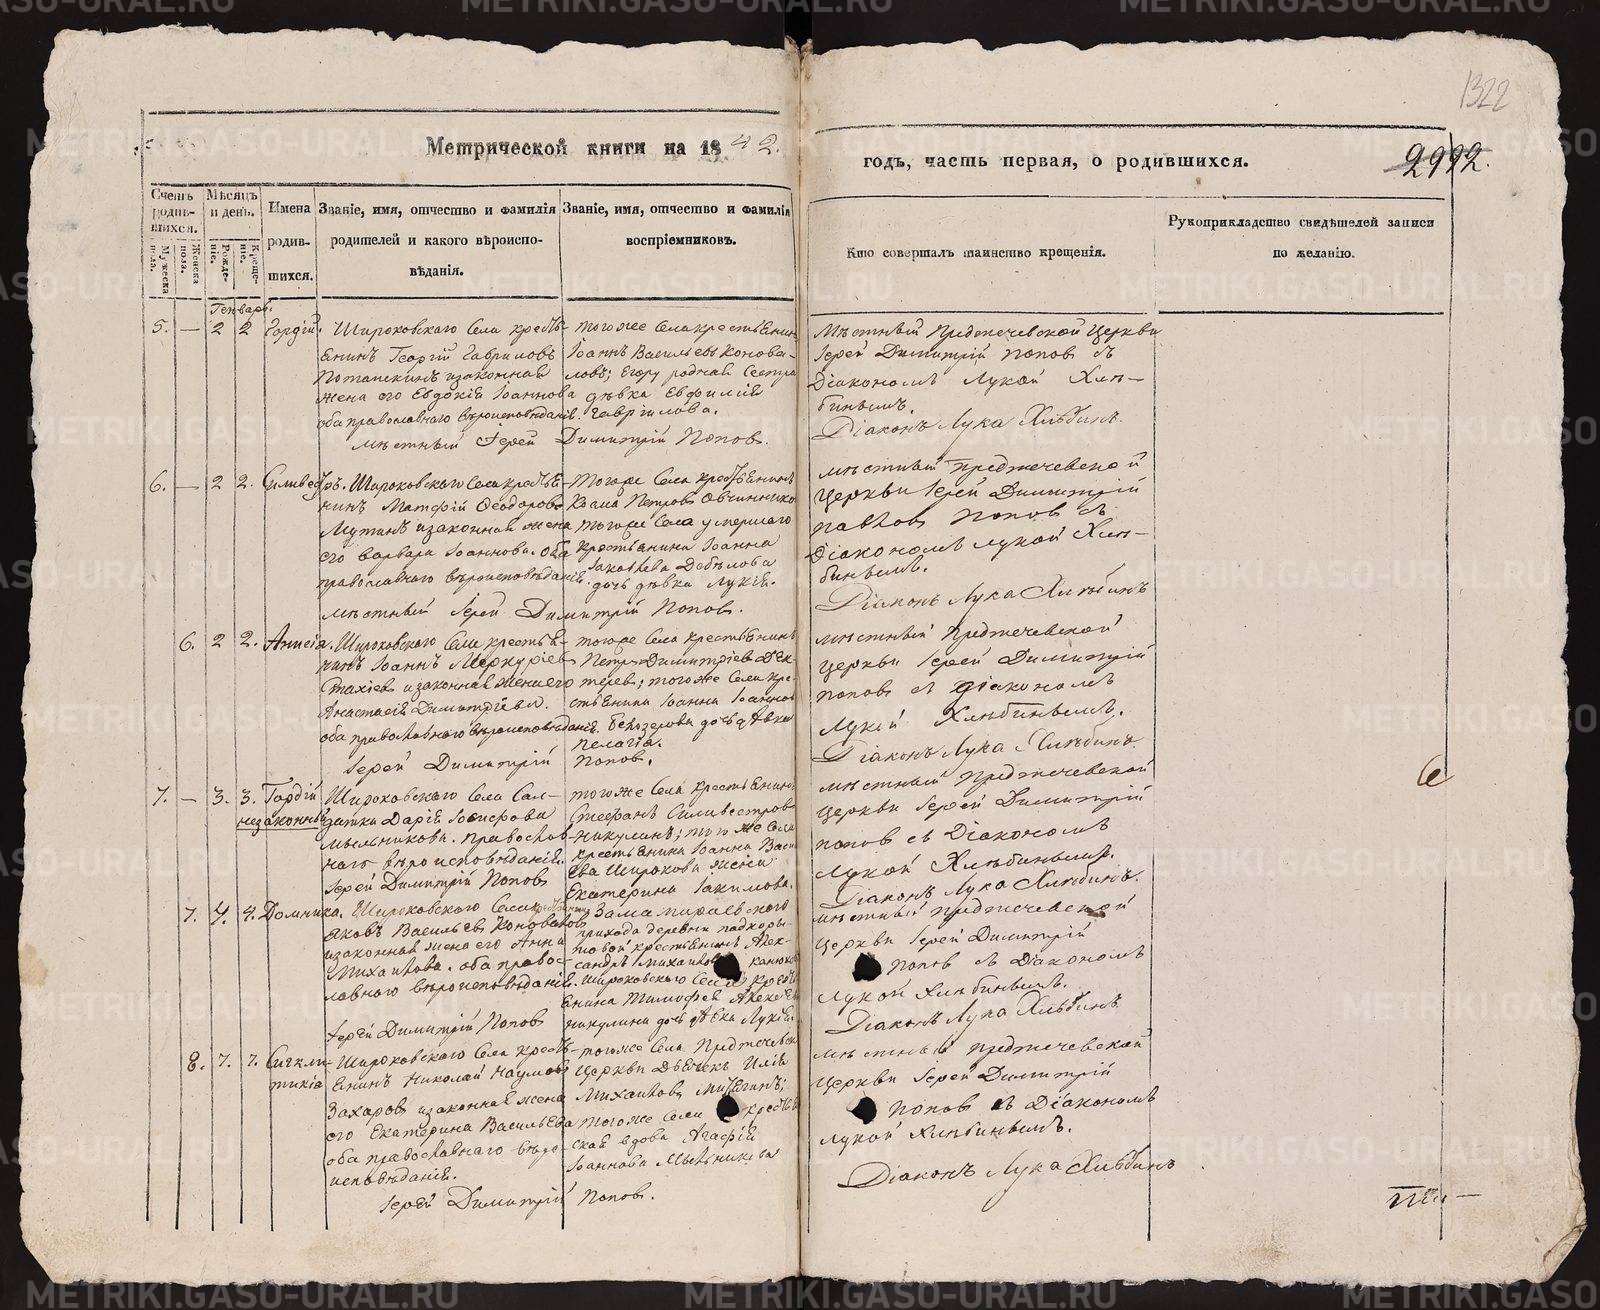 1322
Метрической книги на 1842.
годъ, часть первая, о родившихся.
2992.
Счетъ родившихся.
Мужеска пола.
Женска пола.
Мѣсяцъ и день.
Рожденіе.
Крещеніе.
Имена родившихся.
Званіе, имя, отчество и фамилія
родителей и какого вѣроиспо-
вѣданія.
Званіе, имя, отчество и фамилія
воспріемниковъ.
Кто совершалъ таинство крещенія.
Рукоприкладство свидѣтелей записи
по желанію.
Генварь.
5. — 2 2 Гордій.
Широковскаго Села кресть-
янинъ Георгій Гавриловъ
Потаскинъ изаконная
жена его Евдокія Іоаннова
оба православнаго вѣроисповѣданія.
тогоже Села крестьянинъ
Іоаннъ Васильевъ Конова-
ловъ; Егору родная Сестра
дѣвка Евфимія
Гавріилова.
мѣстный Іерей Димитрій Поповъ.
Мѣстный Предтечевской Церкви
Іерей Димитрій Поповъ съ
Діакономъ Лукой Хлѣ-
бинымъ.
Діаконъ Лука Хлѣбинъ.
6. — 2 2. Сильвестръ.
Широковскаго Села кресть-
янинъ Матфій Феодоровъ
Мутинъ изаконная жена
его Варвара Іоаннова. оба
православнаго вѣроисповѣданія.
Тогоже Села крестьянинъ
Козма Петровъ Овчинниковъ
тогоже Села умершаго
крестьянина Іоанна
Іаковлева Дебелова
дочь дѣвка Лукія.
мѣстный Іерей Димитрій Поповъ.
мѣстный Предтечевской
Церкви Іерей Димитрій
Павловъ Поповъ съ
Діакономъ Лукой Хлѣ-
бинымъ.
Діаконъ Лука Хлѣбинъ
6. 2 2. Анисія.
Широковскаго Села крестья-
нинъ Іоаннъ Меркуріевъ
Стахіевъ изаконная жена его
Анастасія Димитріева.
оба православнаго вѣроисповѣданія.
тогоже Села крестьянинъ
Петръ Димитріевъ Дек-
теревъ; тогоже Села кре-
стьянина Іоанна Іоаннова
Белозерова дочь дѣвка
Пелагія.
Іерей Димитрій Поповъ.
мѣстный Предтечевской
Церкви Іерей Димитрій
Поповъ съ Діакономъ
Лукой Хлѣбинымъ.
Діаконъ Лука Хлѣбинъ
7. — 3. 3. Гордій
незаконный
Широковскаго Села Сол-
датка Дарія Іосифова
Мыльникова. православ-
наго вѣроисповѣданія.
Іерей Димитрій Поповъ
тогоже Села крестьянинъ
Стефанъ Сильвестровъ
Никулинъ; того же Села
крестьянина Іоанна Васи-
ева Широкова жена
Екатерина Іакимова.
мѣстный Предтечевской
Церкви Іерей Димитрій
Поповъ съ Діакономъ
Лукой Хлѣбинымъ.
Діаконъ Лука Хлѣбинъ.
7. 4. 4. Домника.
Широковскаго Села крестьянинъ
Яковъ Васильевъ Коноваловъ
изаконная жена его Анна
Михайлова. оба право-
славнаго вѣроисповѣданія.
Іерей Димитрій Поповъ
Замараевского
прихода деревни Подкоры-
товой крестьянинъ Алек-
сандръ Михайловъ
Широковскаго Села кресть-
янина Тимофея Алексѣева
Никулина дочь дѣвка Лукія.
мѣстный Предтечевской
Церкви Іерей Димитрій
Поповъ съ Діакономъ
Лукой Хлѣбинымъ.
Діаконъ Лука Хлѣбинъ
8. 7. 7. Сигкли-
тикія
Широковскаго Села кресть-
янинъ Николай Наумовъ
Захаровъ изаконная жена
его Екатерина Васильева
оба православнаго вѣро-
исповѣданія.
тогоже Села Предтечевской
Церкви Дьячекъ Илія
Михайловъ
тогоже Села кресть-
ская вдова Агафія
Іоаннова Мыльникова
Іерей Димитрій Поповъ.
мѣстный Предтечевской
Церкви Іерей Димитрій
Поповъ съ Діакономъ
Лукой Хлѣбинымъ.
Діаконъ Лука Хлѣбинъ
METRIKI.GASO-URAL.RU